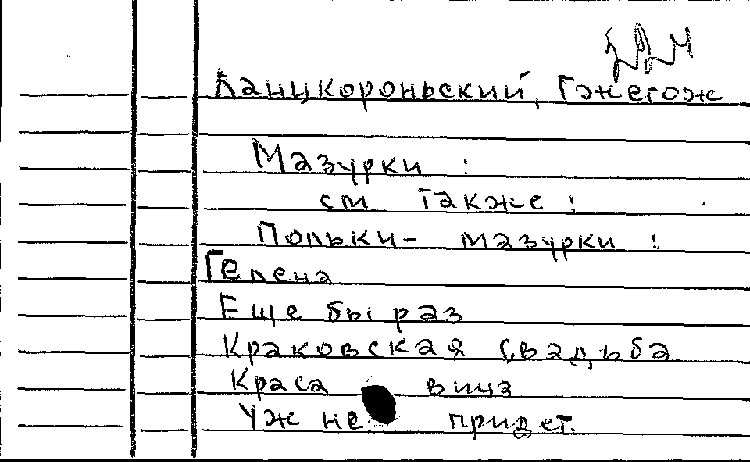 Ланцкороньский, Гжегож
Мазурки :
см также :
Польки - мазурки :
Гелена
Еще бы раз
Краковская свадьба
Краса вица
Уж не придет.